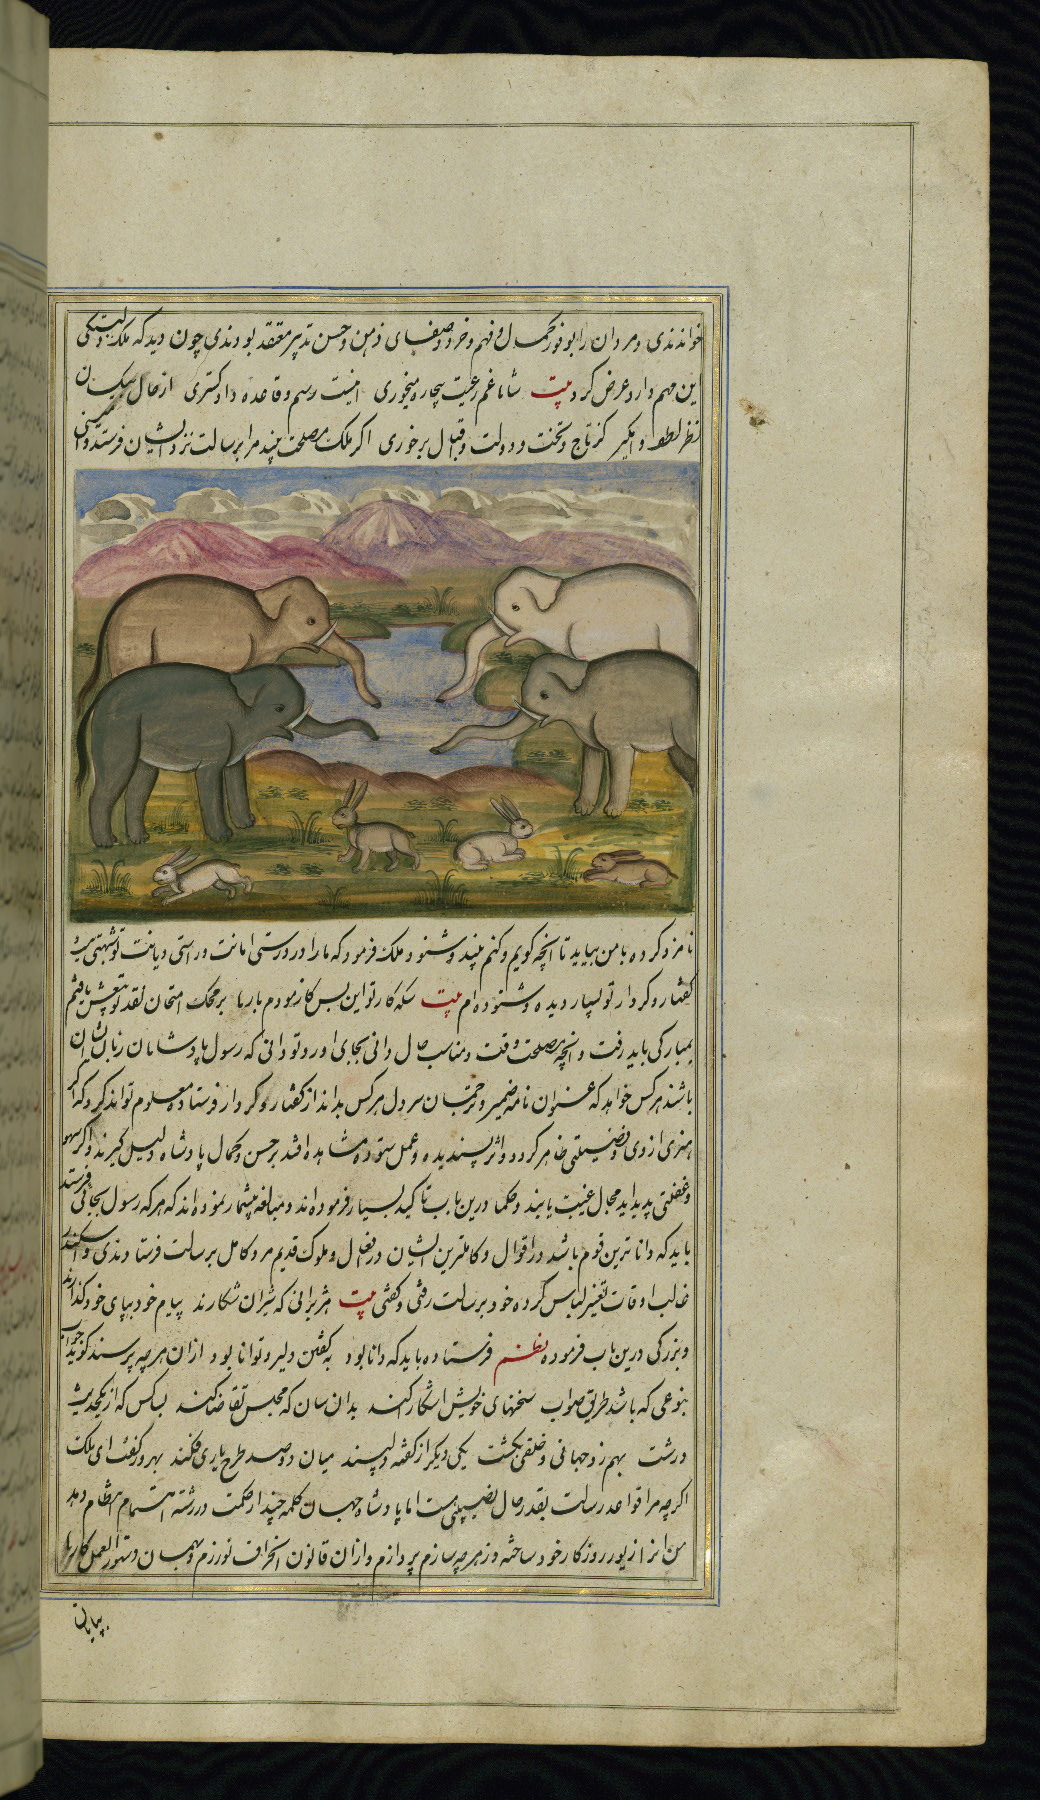 خواندندی و مردان را بوفور کمال و فهم و خرد و صفای ذهن و حسن تدبیر معتقد بودندی چون دید که ملک دلبستگی
این مهم دارد عرض کرد بیت شاها غم رعیت بیچاره میخوری اینست رسم و قاعده دادگستری از حال بیکسان
نظر لطف وامگیر کز تاج و تخت و دولت و اقبال برخوری اگر ملک مصلحت بیند مرا برسالت نزد ایشان فرستد و امینی
نامزد کرده با من بیاید تا آنچه گویم و کنم بیند و شنود ملک فرمود که ما را در درستی امانت و راستی و دیانت تو شبهتی نیست
گفتار و کردار تو بسیار دیده و شنوده‌ام بیت سکه کار تو این بس کازمودم بارها بر محک امتحان نقد تو بیغش یافتم
بمبارکی باید رفت و آنچه مصلحت وقت و مناسب حال دانی بجای آورد و تو دانی که رسول پادشاهان زبان ایشان
باشند هر کس خواهد که عنوان نامه ضمیر و ترجمان سر دل هر کس بداند از گفتار و کردار فرستاده معلوم تواند کرد که اگر
هنری از وی و فضیلتی ظاهر گردد و اثر پسندیده و عمل ستوده مشاهده افتد بر حسن و کمال پادشاه دلیل گیرند و اگر سهو
و غفلتی پدید آید مجال غیبت یابند و حکما درین باب تاکید بسیار فرموده‌اند و مبالغه بیشمار نموده‌اند که هر که رسول بجائی فرستد
باید که داناترین قوم باشد در اقوال و کاملترین ایشان در افعال و ملوک قدیم مرد کامل برسالت فرستادندی و اسکندر
غالب اوقات تغییر لباس کرده خود برسالت رفتی و گفتی بیت هژبرانی که شیران شکارند پیام خود بپای خود گذارند
و بزرگی درین باب فرموده نظم فرستاده باید که دانا بود به گفتن دلیر و توانا بود از آن هرچه پرسند گوید جواب
بنوعی که باشد طریق صواب سخنهای خویش آشکارا کند بدان سان که مجلس تقاضا کند بسا کس که از یک حدیث
درشت بهم زد جهانی و خلقی بکشت یکی دیگر از گفته دلپسند میان دو صد طرح یاری فکند بهروز گفت ای ملک
اگرچه مرا قواعد رسالت بقدر حال نصیبی هست اما پادشاه جهان کلمه چند از حکمت در رشته اهتمام انتظام دهد
من آنرا زیور روزگار خود ساخته و ز هرچه سازم پردازم و از آن قانون انحراف نورزم و بهمان دستورالعمل کارها
بپایان